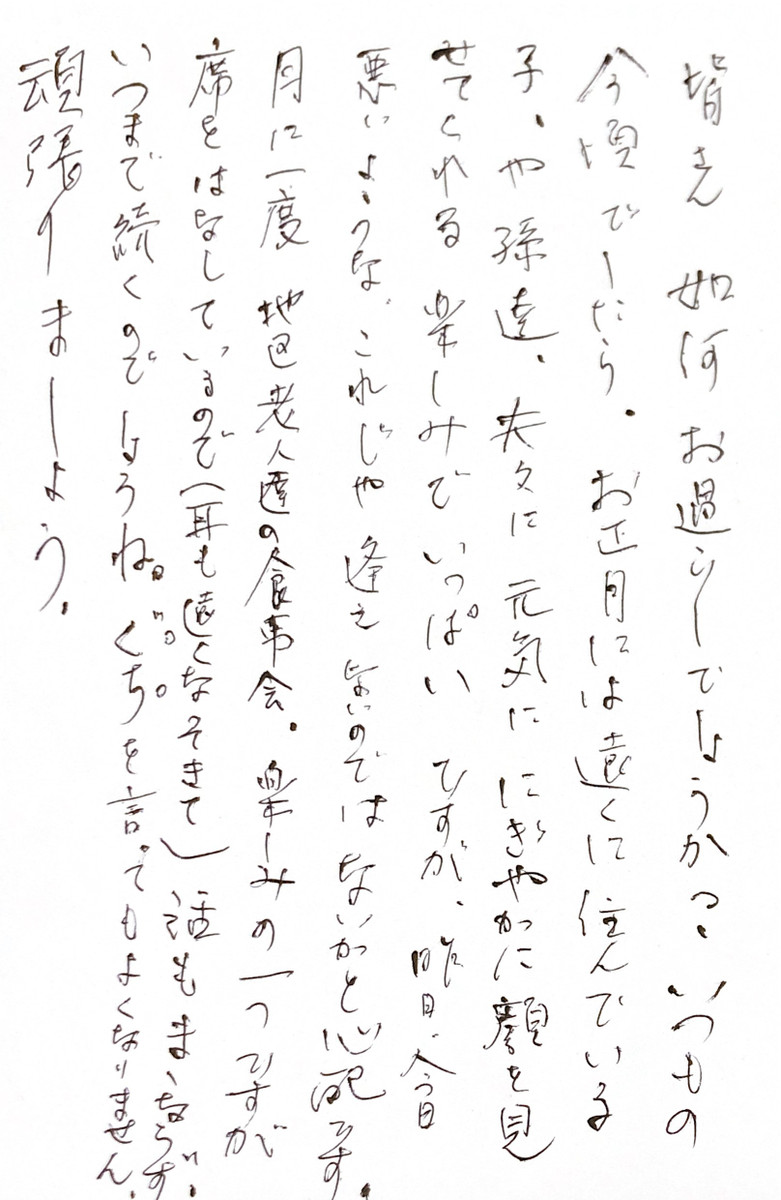 皆さん 如何 お過ごしでしょうか? いつもの
今頃でしたら、お正月には遠くに住んでいる
子、や孫達、夫々に 元気に にぎやかに顔を見
せてくれる 楽しみで いっぱい ですが、昨日、今日
悪いような、これじゃ 逢え ないのでは ないかと心配です。
月に一度 地区老人達の食事会、楽しみの一つですが
席をはなしているので(耳も遠くなってきて)話もまゝならず、
いつまで続くのでしょうね。ぐちを言ってもよくなりません、
頑張りましょう。